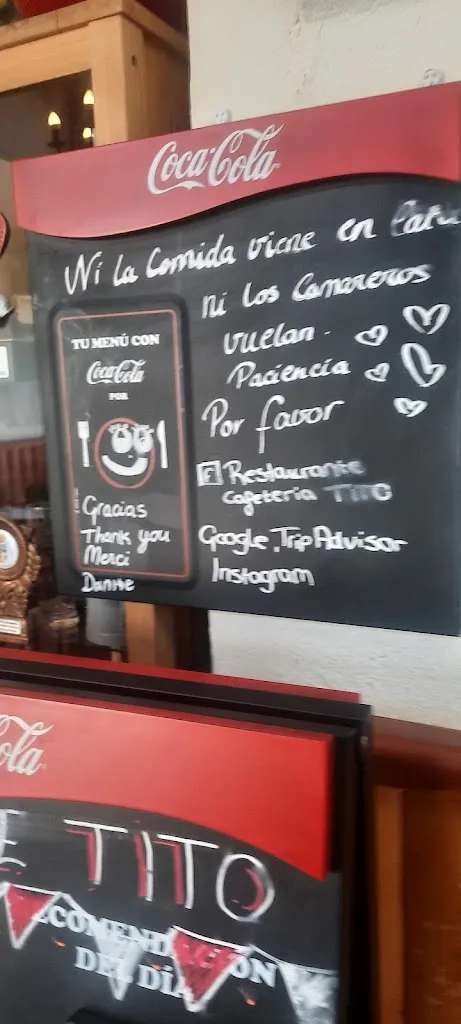 Coca-Cola
Ni la Comida viene en lata
ni los Camareros
vuelan.
Paciencia
Por favor
TU MENÚ CON
Coca-Cola
POR
Gracias
Thank you
Merci
Danke
F Restaurante
Cafetería TITO
Google, TripAdvisor
Instagram
ola
E TITO
RECOMENDACIÓN
DEL DÍA